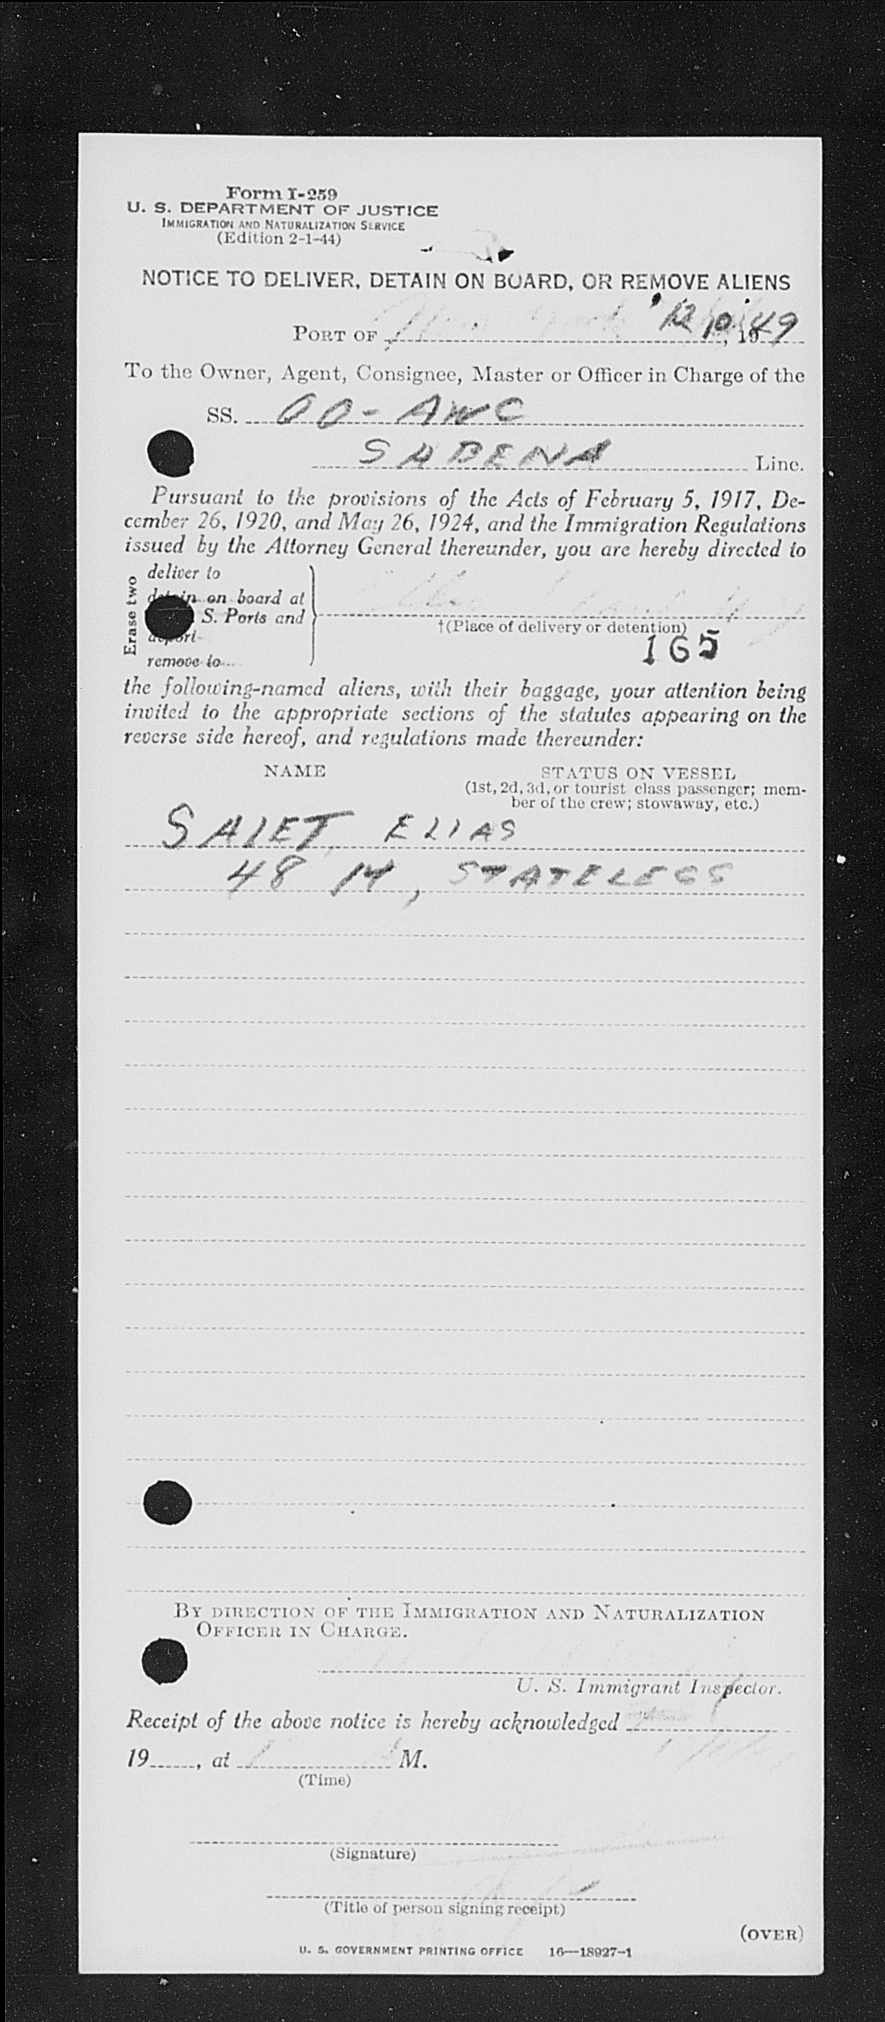 Form I-259
U. S. DEPARTMENT OF JUSTICE
IMMIGRATION AND NATURALIZATION SERVICE
(Edition 2-1-44)
NOTICE TO DELIVER, DETAIN ON BOARD, OR REMOVE ALIENS
PORT OF New York 12/10, 1949
To the Owner, Agent, Consignee, Master or Officer in Charge of the
SS. OO-AWC
SABENA Line.
Pursuant to the provisions of the Acts of February 5, 1917, De-
cember 26, 1920, and May 26, 1924, and the Immigration Regulations
issued by the Attorney General thereunder, you are hereby directed to
Erase two
deliver to
detain on board at
S. Ports and
deport
remove to
†(Place of delivery or detention)
165
the following-named aliens, with their baggage, your attention being
invited to the appropriate sections of the statutes appearing on the
reverse side hereof, and regulations made thereunder:
NAME STATUS ON VESSEL
(1st, 2d, 3d, or tourist class passenger; mem-
ber of the crew; stowaway, etc.)
SAIET, ELIAS
48 M, STATELESS
BY DIRECTION OF THE IMMIGRATION AND NATURALIZATION
OFFICER IN CHARGE.
U. S. Immigrant Inspector.
Receipt of the above notice is hereby acknowledged
19, at M.
(Time)
(Signature)
(Title of person signing receipt)
(OVER)
U. S. GOVERNMENT PRINTING OFFICE 16—18927-1